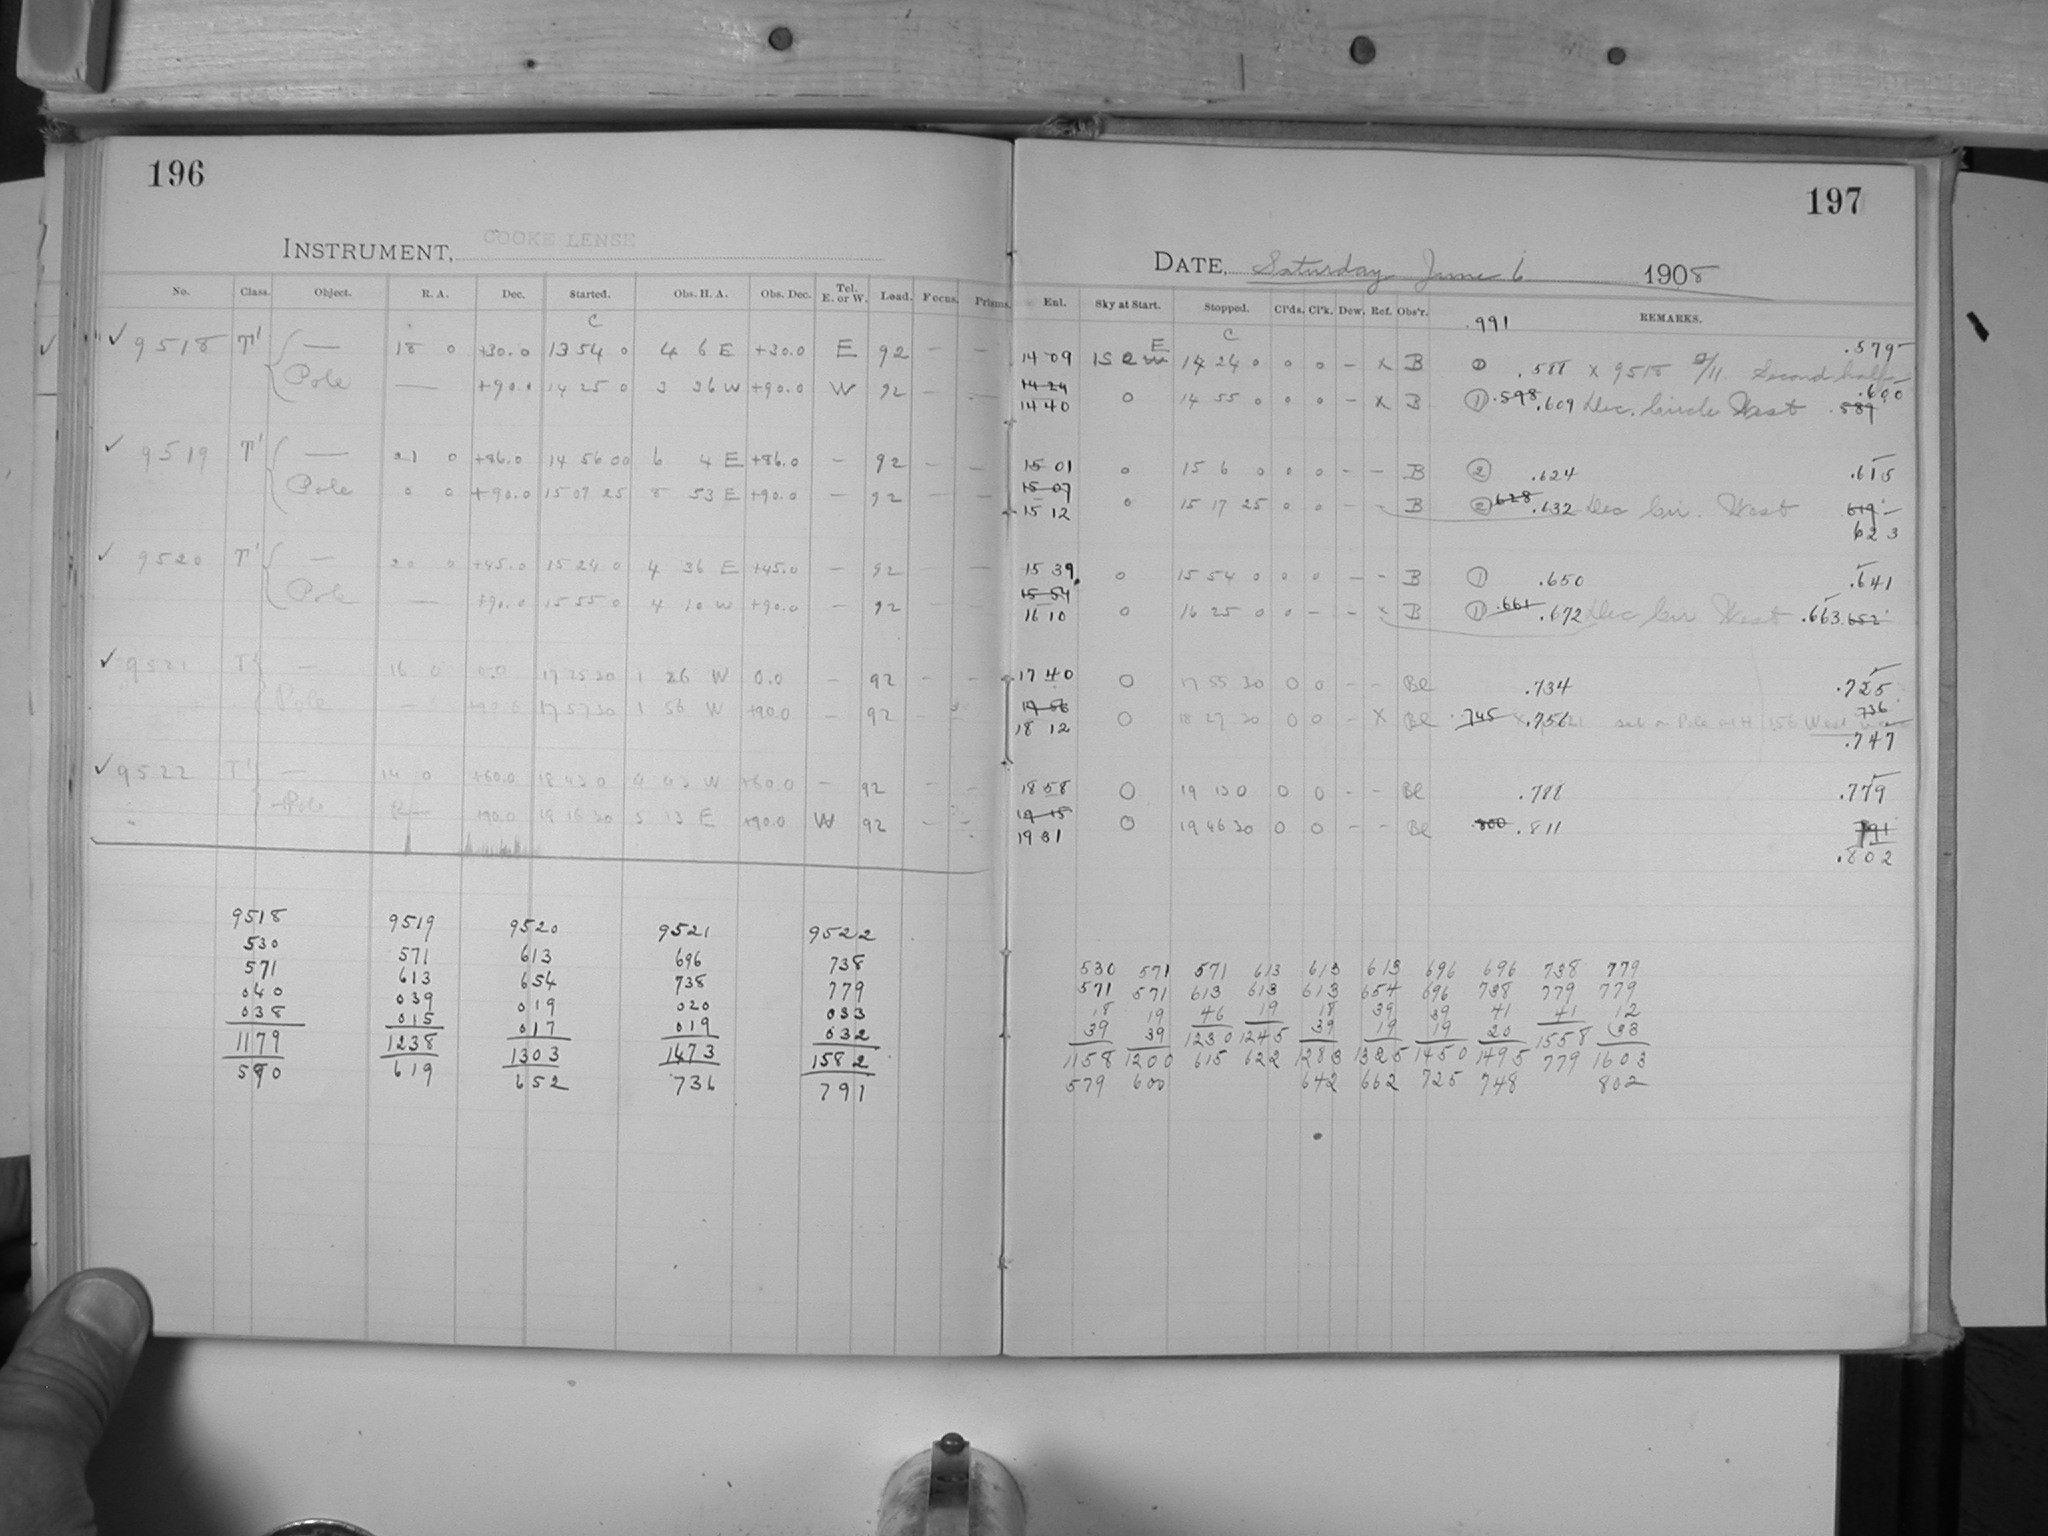 196
INSTRUMENT, COOKE LENSE
No. Class. Object. R. A. Dec. Started. Obs. H. A. Obs. Dec. Tel. E. or W. Load. Focus. Prisms.
C
✓ 9518 T' — 18 0 +30.0 13 54 0 4 6 E +30.0 E 92 — —
Pole — +90.0 14 25 0 3 36 W +90.0 W 92 — —
✓ 9519 T' — 21 0 +86.0 14 56 00 6 4 E +86.0 — 92 — —
Pole 0 0 +90.0 15 07 25 8 53 E +90.0 — 92 — —
✓ 9520 T' — 20 0 +45.0 15 24 0 4 36 E +45.0 — 92 — —
Pole — +90.0 15 55 0 4 10 W +90.0 — 92
✓ 9521 T' — 16 0 0.0 17 25 30 1 26 W 0.0 — 92 — —
Pole — 17 57 30 1 56 W +90.0 — 92 —
✓ 9522 T' — 14 0 +60.0 18 43 0 W +60.0 — 92 — —
Pole +90.0 19 16 30 5 13 E +90.0 W 92 — —
9518 9519 9520 9521 9522
530 571 613 696 738
571 613 654 738 779
040 039 019 020 033
038 015 017 019 032
1179 1238 1303 1473 1582
590 619 652 736 791
197
DATE, Saturday June 6 1908
Enl. Sky at Start. Stopped. Cl'ds. Cl'k. Dew. Ref. Obs'r. REMARKS.
.991
E C
14 09 14 24 0 0 0 — X B .588 X 9518 Second half .579
14 24
14 40 0 14 55 0 0 0 — X B ① .598 .609 Dec. Circle West .589 .600
15 01 0 15 6 0 0 0 — — B ② .624 .615
15 07
15 12 0 15 17 25 0 0 — — B ② .628 .632 Dec Cir. West 619
623
15 39 0 15 54 0 0 0 — — B ① .650 .641
15 54
16 10 0 16 25 0 0 — — B ① .661 .672 Dec Cir West .663 .652
17 40 0 17 55 30 0 0 — — Be .734 .725
17 56 736
18 12 0 18 27 30 0 0 — X Be .745 X .756 set on Pole at H 1.56 West
.747
18 58 0 19 13 0 0 0 — — Be .788 .779
19 15
19 31 0 19 46 30 0 0 — — Be .800 .811 791
.802
530 571 571 613 613 613 696 696 738 779
571 571 613 613 613 654 696 738 779 779
18 19 46 19 18 39 39 41 41 12
39 39 1230 1245 39 19 19 20 1558 33
1158 1200 615 622 1283 1325 1450 1495 779 1603
579 600 642 662 725 748 802